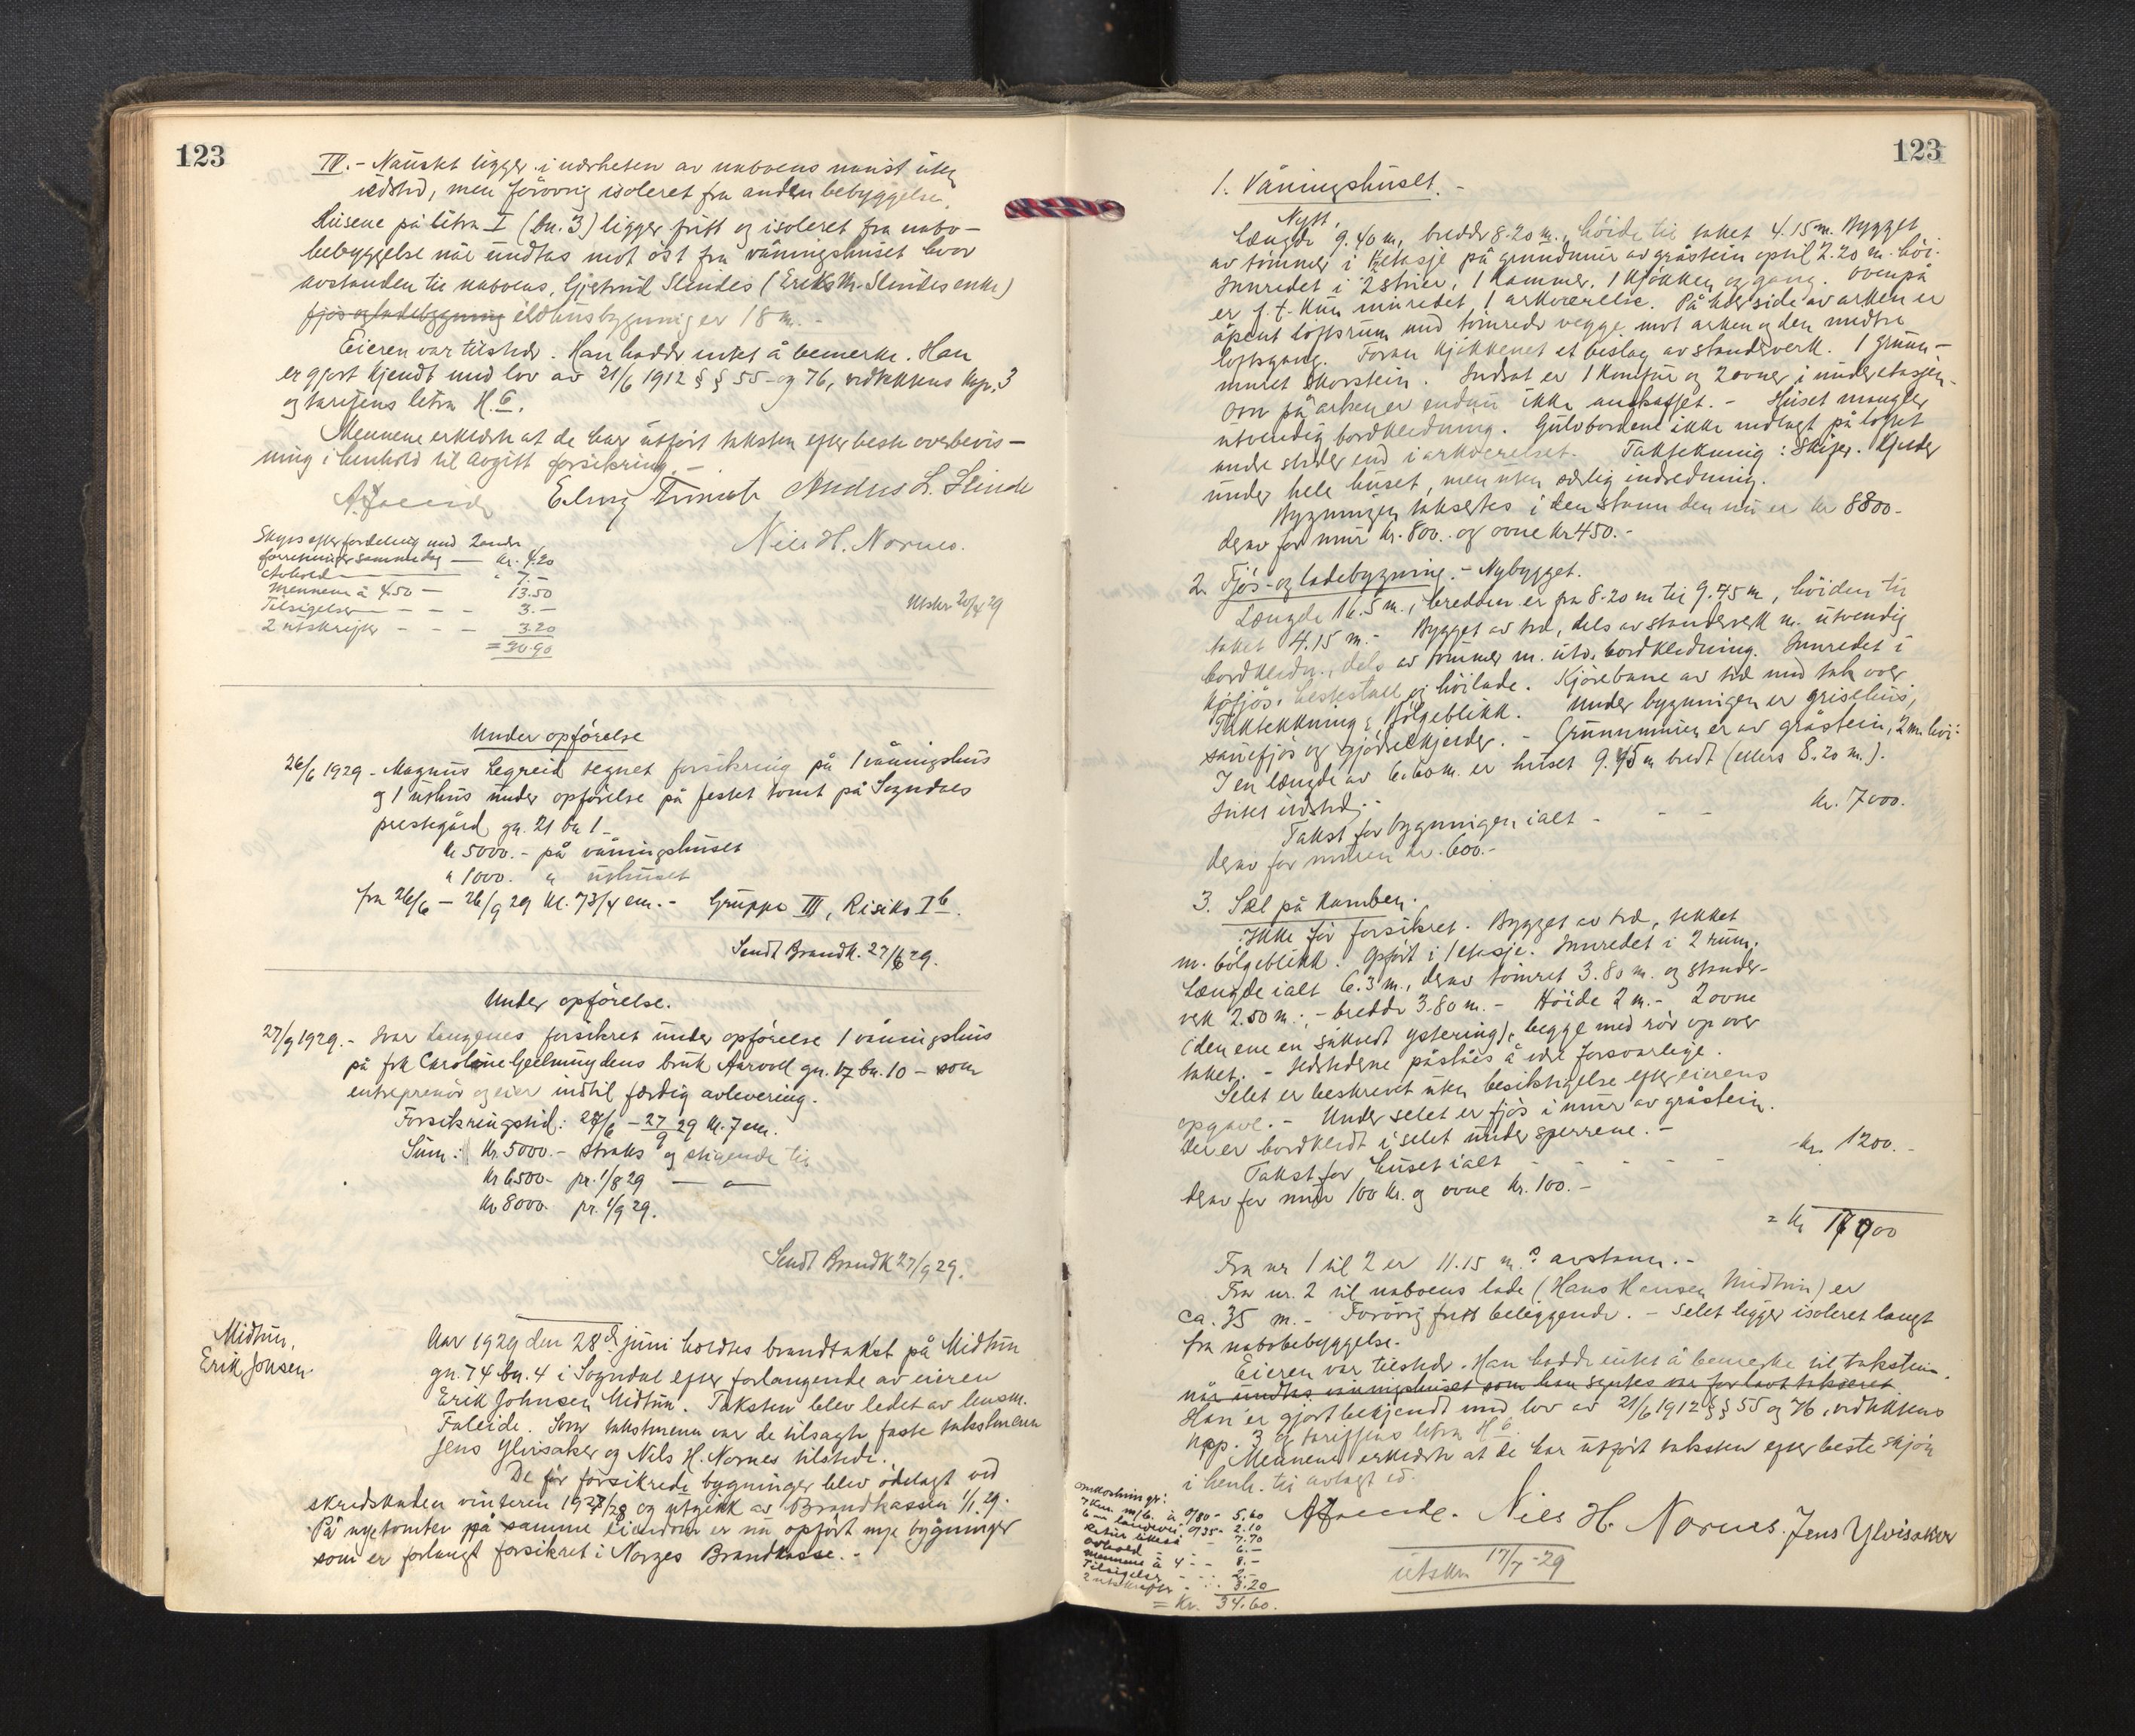 123
IV. - Naustet ligger i nærheten av naboens naust uten
ildsted, men forøvrig isoleret fra anden bebyggelse.
Husene på litra I (bn. 3) ligger fritt og isoleret fra nabo-
bebyggelse når undtas mot øst fra våningshuset hvor
avstanden til naboens, Gjertrud Slindes (Erik M. Slindes enke)
fjøs og ladebygning ildhusbygning er 18 m. -
Eieren var tilstede. Han hadde intet å bemerke. Han
er gjort kjendt med lov av 21/6 1912 § § 55 og 76, vedtektens kap. 3
og tariffens litra H. 6.
Mennene erklærte at de har utført taksten efter beste overbevis-
ning i henhold til avgitt forsikring. -
A. Faleide Anders L. Slinde
Nils H. Nornes.
Skyss efter fordeling med 2 andre
forretninger samme dag - kr. 4.20
Avhold - " 7.-
Mennene à 4.50 - 13.50
Tilsigelser - - - 3.-
2 utskrifter - - - 3.20
= 30.90
Utskr 20/4 29
Under opførelse
26/6 1929 - Magnus Legreid tegnet forsikring på 1 våningshus
og 1 uthus under opførelse på festet tomt på Sogndals
prestegård gn. 21 bn 1 -
kr 5000.- på våningshuset
" 1000. " uthuset
fra 26/6 - 26/9 29 kl. 7 3/4 em. - Gruppe III, Risiko I b.
Sendt Brandk. 27/6 29.
Under opførelse.
27/9 1929. - Ivar Langenes forsikret under opførelse 1 våningshus
på frk Caroline Geelmuydens bruk Aarvoll gn. 17 bn. 10 - som
entreprenør og eier indtil færdig avlevering.
Forsikringstid: 27/6 - 27/9 29 kl. 7 em.
Sum: kr. 5000.- straks og stigende til
kr 6500- pr. 1/8 29 — " —
kr 8000. pr. 1/9 29.
Sendt Brandk 27/9 29.
Midtun,
Erik Johsen.
Aar 1929 den 28de juni holdtes brandtakst på Midtun
gn. 74 bn. 4 i Sogndal efter forlangende av eieren
Erik Johnsen Midtun. Taksten blev ledet av lensm.
Faleide. Som takstmenn var de tilsagte, faste takstmenn
Jens Ylvisaker og Nils H. Nornes tilstede.
De før forsikrede bygninger blev ødelagt ved
skredskaden vinteren 1927/28 og utgikk av Brandkassen 1/1. 29.
På nye tomter på samme eiendom er nu opført nye bygninger
som er forlangt forsikret i Norges Brandkasse. -
123
1. Våningshuset. -
Nytt.
Længde 9.40 m, bredde 8.20 m., høide til taket 4.15 m. Bygget
av tømmer i 1 1/2 etasje på grundmur av gråstein optil 2.20 m. høi.
Innredet i 2 stuer, 1 kammer, 1 kjøkken og gang. Ovenpå
er f. t. kun innredet 1 arkværelse. På hver side av arken er
åpent loftsrum med tømrede vegge mot arken og den midtre
loftsgang. Foran kjøkkenet et bislag av standerverk. 1 grunn-
muret skorstein. Indsat er 1 komfur og 2 ovner i underetasjen.
Ovn på arken er endnu ikke anskaffet. - Huset mangler
utvendig bordklædning. Gulvbordene ikke nedlagt på loftet
andre steder end i arkværelset. Taktekning: Skifer. Kjeller
under hele huset, men uten særlig indredning.
Bygningen takseres i den stann den nu er kr 8800-
derav for mur kr. 800.- og ovne kr 450.-
2. Fjøs- og ladebygning. - Nybygget.
Længde 16.5 m., bredden er fra 8.20 m til 9.45 m, høiden til
taket 4.15 m. - Bygget av tre, dels av standerverk m. utvendig
bordklædn., dels av tømmer m. utv. bordklædning. Innredet i
kufjøs, hestestall og høilade. Kjørebane av tre med tak over.
Taktekkning: Bølgeblikk. Under bygningen er grisehus,
sauefjøs og gjødselkjeller. - Grunnmuren er av gråstein, 2 m. høi.
I en længde av 6.60 m. er huset 9.45 m bredt (ellers 8.20 m.).
Intet ildsted. -
Takst for bygningen ialt - - - kr. 7000.
derav for muren kr. 600.-
3. Sel på Kamben.
Ikke før forsikret. Bygget av tre, tekket
m. bølgeblikk. Opført i 1 etasje. Innredet i 2 rum.
Længde ialt 6.3 m., derav tømret 3.80 m. og stander-
verk 2.50 m.; - bredde 3.80 m. - Høide 2 m. - 2 ovne
(den ene en såkaldt ystering), begge med rør op over
taket. - Ildstederne påståes å være forsvarlige.
Selet er beskrevet uten besiktigelse efter eierens
opgave. - Under selet er fjøs i mur av gråstein.
Der er bordklædt i selet under sperrene. -
Takst for huset ialt - - - - - kr. 1200.-
derav for mur 100 kr. og ovne kr. 100.-
= kr 17000
Fra nr 1 til 2 er 11.15 m.s avstann. -
Fra nr. 2 til naboens lade (Hans Hansen Midtun) er
ca. 35 m. - Forøvrig fritt beliggende. - Selet ligger isoleret langt
fra nabobebyggelse.
Eieren var tilstede. Han hadde intet å bemerke til taksten.
når undtas våningshuset som han syntes var for lavt taksert.
Han er gjort bekjendt med lov av 21/6 1912 § § 55 og 76, vedtektens
kap. 3 og tariffens litra H 6.
Mennene erklærte at de har utført taksten efter beste skjøn
i henh. til avlagt ed.
A. Faleide. Nils H. Nornes. Jens Ylvisaker
Omkostninger:
7 km. m/b. à 0/80 - 5.60
6 " landevei 0/35 - 2.10
Retur likeså - 7.70
Avhold - - 6.-
Mennene à 4 - - 8.-
Tilsigelser - - - 2.-
2 utskrifter - - - 3.20
= kr. 34.60.
utskr. 17/7-29